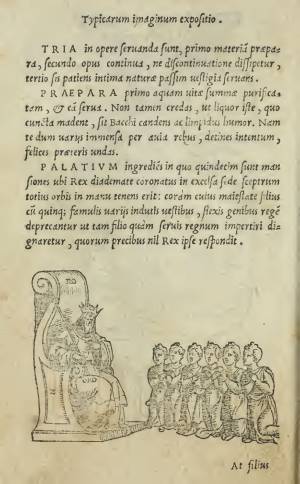 Typicarum imaginum expositio.
TRIA in opere seruanda sunt, primo materiã præpa-
ra, secundo opus continua, ne discontinuatione dissipetur,
tertio sis patiens intima naturæ passim uestigia seruans.
PRAEPARA primo aquam uitæ summæ purifica-
tam, & eã serua. Non tamin credas, ut liquor iste, quo
cuncta madent, sit Bacchi candens ac limpidus humor. Nam
te dum uarijs immensa per auia rebus, detines intentum,
felices præteris undas.
PALATIVM ingrediēs in quo quindecim sunt man
siones ubi Rex diademate coronatus in excelsa sede sceptrum
totius orbis in manu tenens erit: corām cuius maiestate filius
cū quinq; famulis uarijs indutis uestibus, flexis genibus regē
deprecantur ut tam filio quàm seruis regnum impertiri di-
gnaretur, quorum precibus nil Rex ipse respondit.
At filius